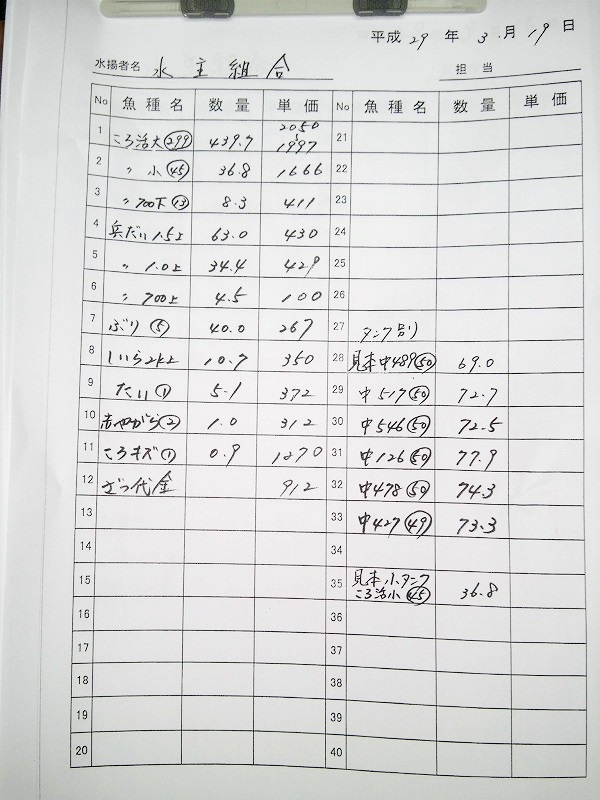 平成 29 年 3 月 19 日
水揚者名 水主組合 担当
No 魚種名 数量 単価 No 魚種名 数量 単価
1 ころ活大(299) 439.7 2050〜1997 21
2 〃 小(45) 36.8 1666 22
3 〃 700下(13) 8.3 411 23
4 兵だい1.5上 63.0 430 24
5 〃 1.0上 34.4 429 25
6 〃 700上 4.5 100 26
7 ぶり(5) 40.0 267 27 タンク別
8 しいら2k上 10.7 350 28 見本中489(50) 69.0
9 たい(1) 5.1 372 29 中517(50) 72.7
10 赤やがら(2) 1.0 312 30 中546(50) 72.5
11 ころキズ(1) 0.9 1270 31 中126(50) 77.9
12 ざつ代金 912 32 中478(50) 74.3
13 33 中427(49) 73.3
14 34
15 35 見本小タンク
ころ活小(45) 36.8
16 36
17 37
18 38
19 39
20 40